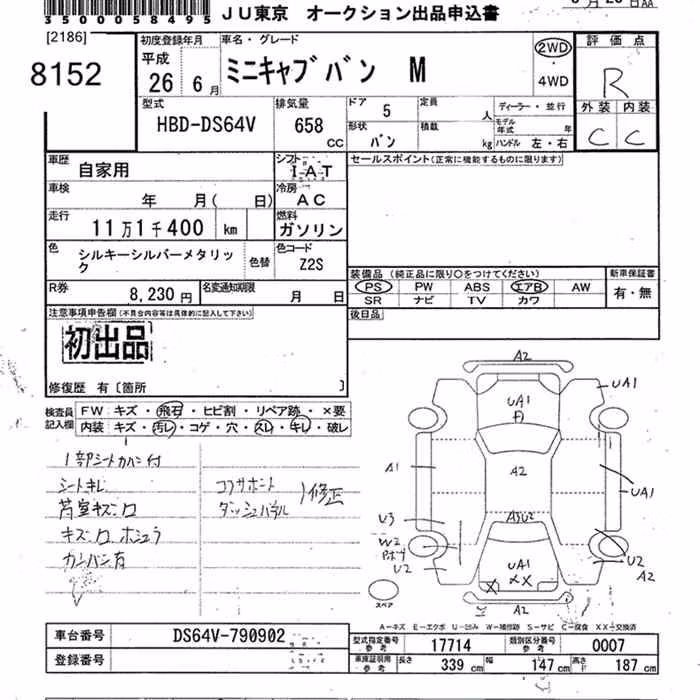 3500058495 JU東京 オークション出品申込書
[2186]
8152
初度登録年月 車名・グレード 2WD 評価点
平成 26 6月 ミニキャブバン M 4WD R
型式 排気量 ドア 定員 ディーラー・並行 外装 内装
HBD-DS64V 658 cc 5 人 モデル年式 年 C C
形状 積載 ハンドル 左・右
バン kg
車歴 シフト セールスポイント(正常に機能するものに限ります)
自家用 IAT
車検 冷房
年 月( 日) AC
走行 燃料
11万1千400 km ガソリン
色 色コード
シルキーシルバーメタリック 色替 Z2S
装備品 (純正品に限り〇をつけてください) 新車保証書
PS PW ABS エアB AW 有・無
SR ナビ TV カワ
R券 8,230円 名変通知期限 月 日
後日品
注意事項申告欄(不具合内容等は具体的に記入して下さい)
初出品
修復歴 有〔箇所 〕
検査員記入欄
FW キズ・飛石・ヒビ割・リペア跡・×要
内装 キズ・汚レ・コゲ・穴・スレ・キレ・破レ
1部シートカバー付
シートキレ
荷室キズ
キズ
カンバン有
コアサポート
ダッシュパネル
修正
A2
UA1
UA1
A1
A2
UA1
U3
W2
U2
UA1
XX
U2
A2
A2
スペア
A=キズ E=エクボ U=凹み W=補修跡 S=サビ C=腐食 XX=交換済
車台番号 DS64V-790902
登録番号
型式指定番号 参考 17714 類別区分番号 参考 0007
車庫証明用 参考 長さ 339 cm 幅 147 cm 高さ 187 cm